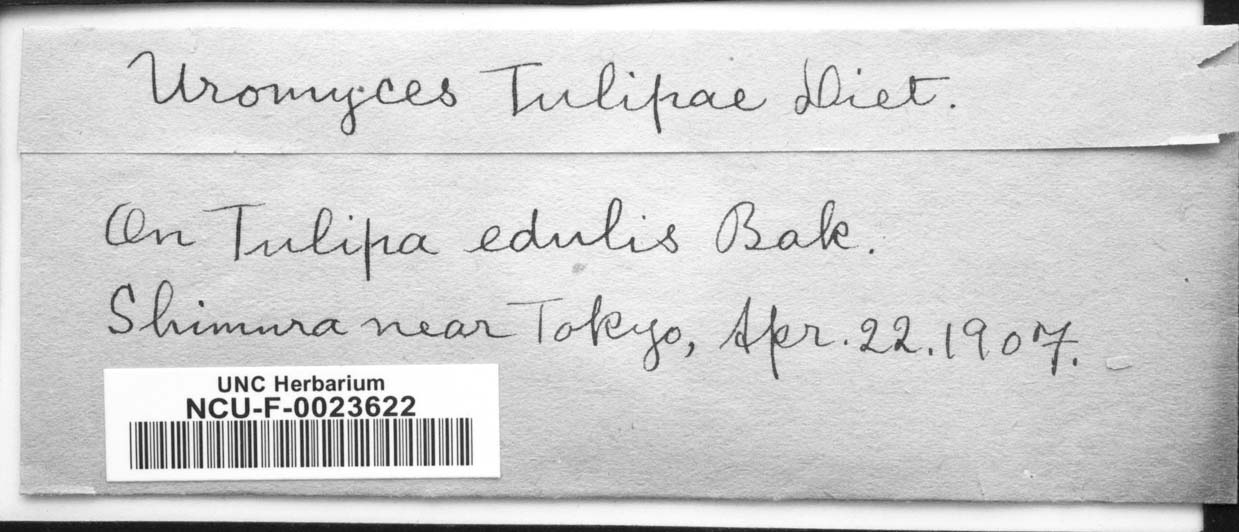 Uromyces Tulipae Diet.
On Tulipa edulis Bak.
Shimura near Tokyo, Apr. 22. 1907.
UNC Herbarium
NCU-F-0023622